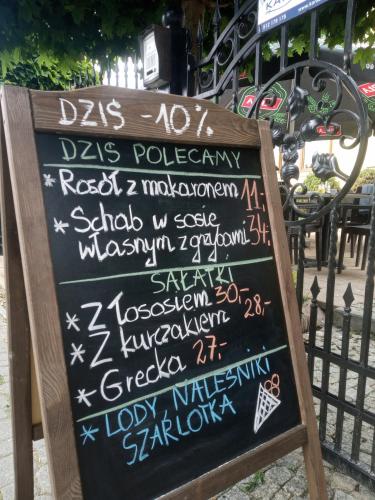 DZIŚ -10%
DZIŚ POLECAMY
* Rosół z makaronem 11,-
* Schab w sosie
własnym z grzybami 34,-
SAŁATKI
* Z łososiem 30,-
* Z kurczakiem 28,-
* Grecka 27,-
* LODY NALEŚNIKI
SZARLOTKA